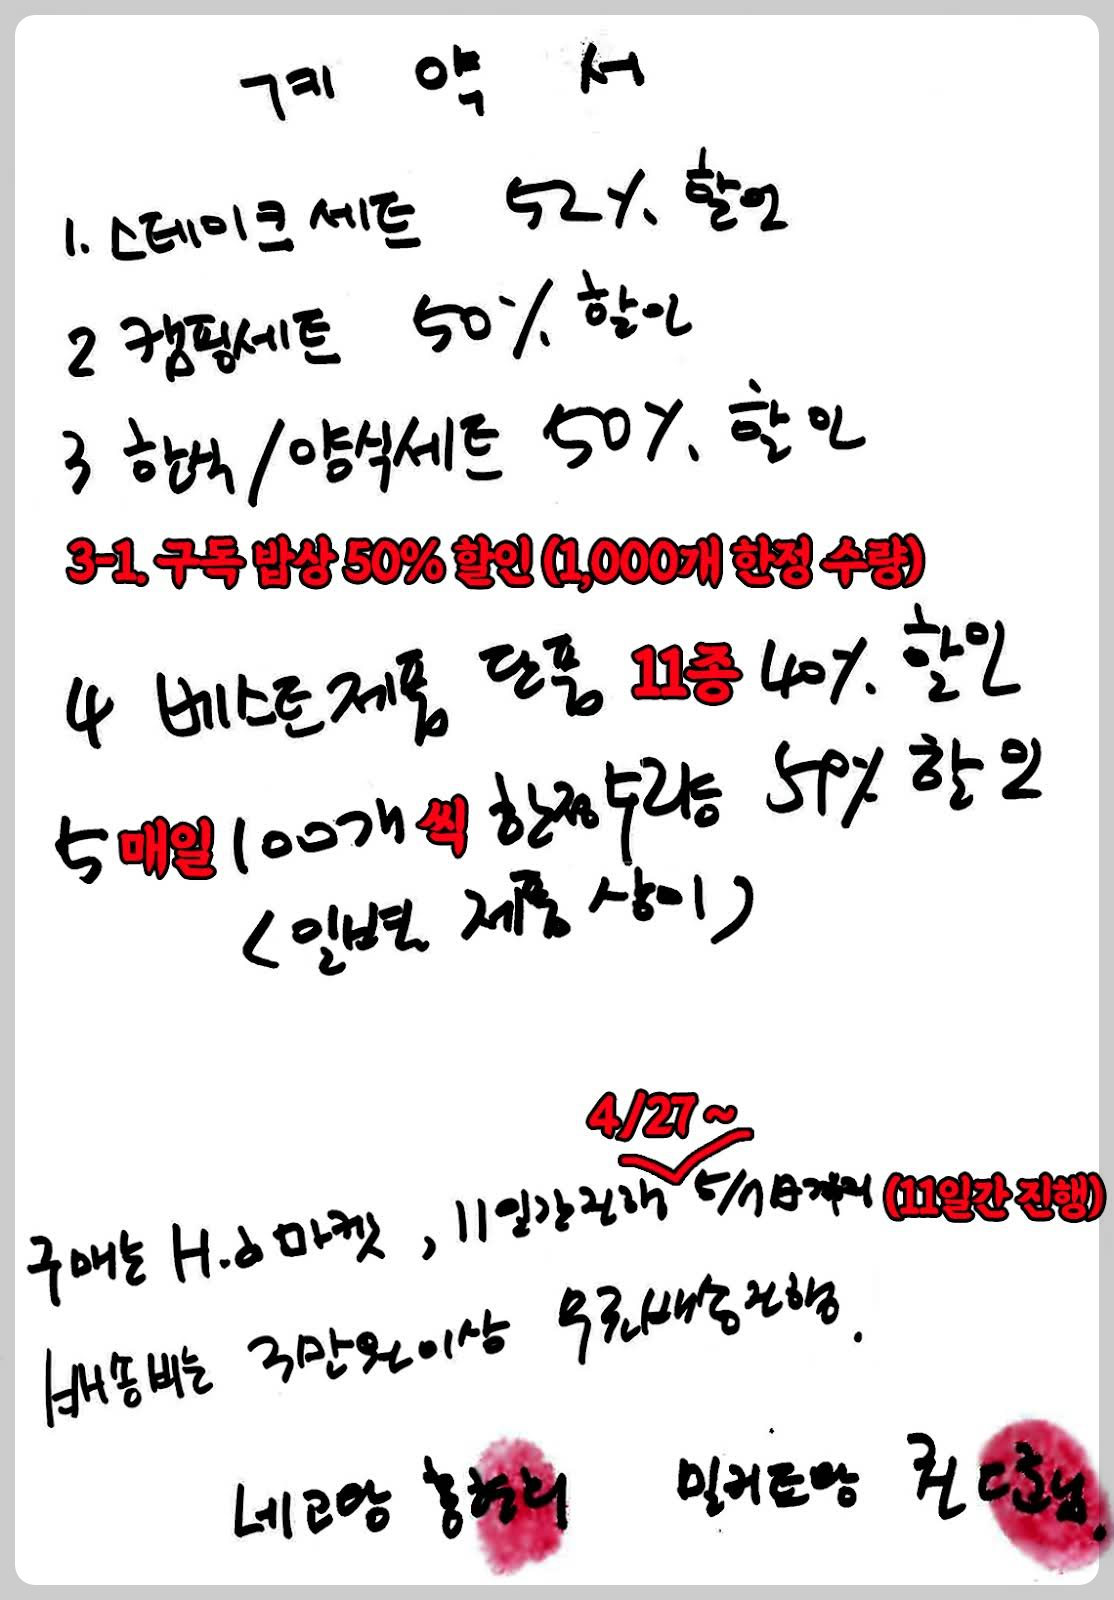 계 약 서
1. 스테이크 세트 52% 할인
2 캠핑세트 50% 할인
3 한식/양식세트 50% 할인
3-1. 구독 밥상 50% 할인 (1,000개 한정 수량)
4 베스트제품 단품 11종 40% 할인
5 매일 100개 씩 한정수량 59% 할인
(일별 제품 상이)
4/27 ~
구매는 H.o마켓, 11일간진행 5/7日까지 (11일간 진행)
배송비는 3만원이상 무료배송진행.
네고왕 홍현희 밀키트왕